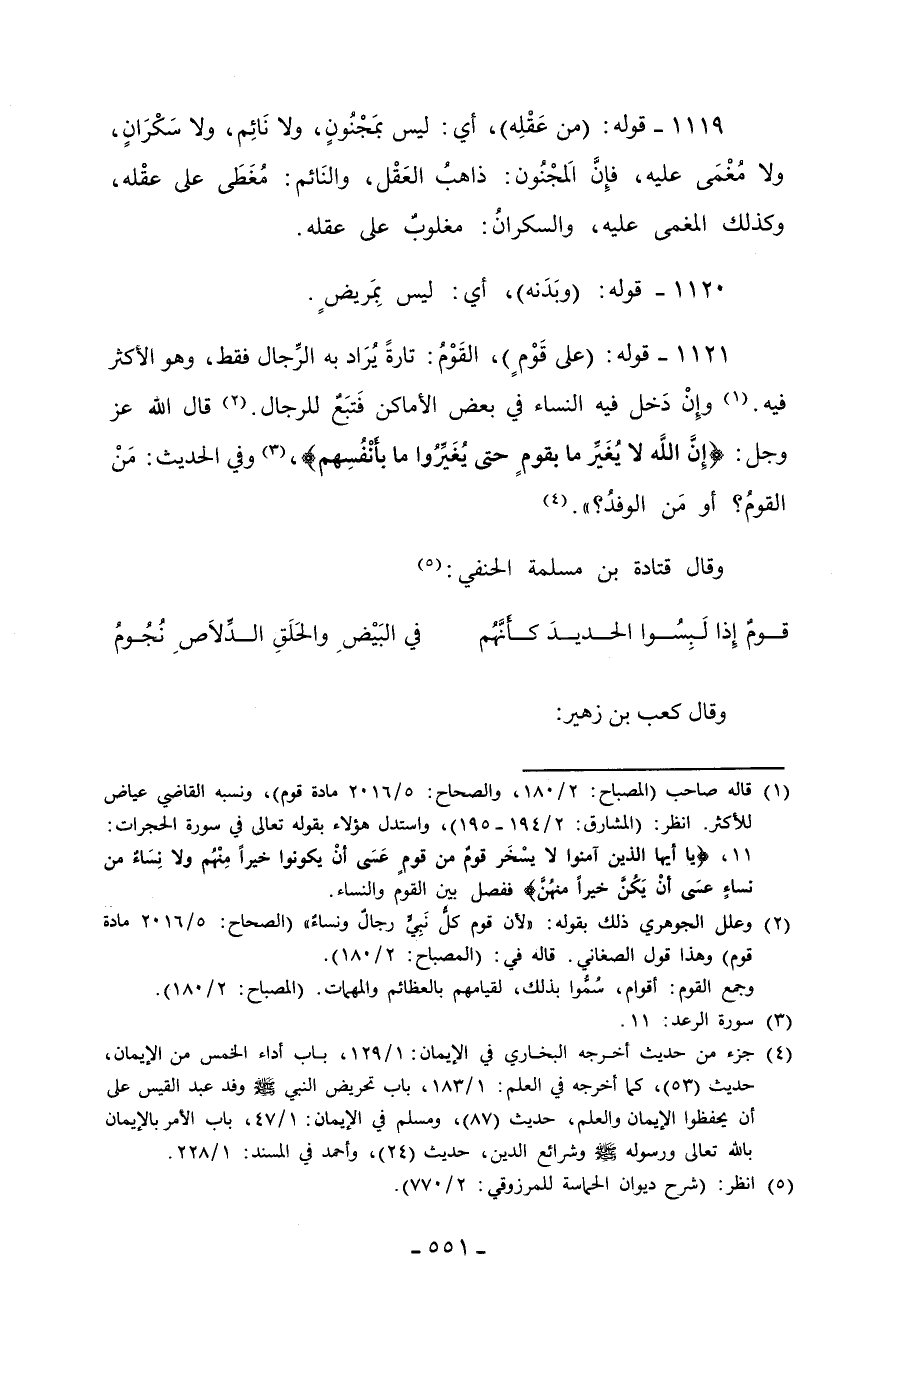 ١١١٩ ـ قوله: (من عَقْلِه)، أي: ليس بمَجْنُونٍ، ولا نَائِم، ولا سَكْرَانٍ،
ولا مُغْمَى عليه، فإنَّ المَجْنُون: ذاهبُ العَقْل، والنَائم: مُغَطَى على عقْله،
وكذلك المغمى عليه، والسكرانُ: مغلوبٌ على عقله.
١١٢٠ ـ قوله: (وبَدَنه)، أي: ليس بمَريضٍ.
١١٢١ ـ قوله: (على قَوْمٍ)، القَوْمُ: تارةً يُرَاد به الرِّجال فقط، وهو الأكثر
فيه.(١) وإنْ دَخل فيه النساء في بعض الأماكن فَتَبَعٌ للرجال.(٢) قال الله عز
وجل: ﴿إنَّ اللَّه لا يُغَيِّر ما بقومٍ حتى يُغَيِّرُوا ما بأَنْفُسِهم﴾،(٣) وفي الحديث: مَنْ
القومُ؟ أو مَن الوفدُ؟».(٤)
وقال قتادة بن مسلمة الحنفي:(٥)
قـومٌ إذا لَبِسُـوا الحـديـدَ كـأنَّهُم في البَيْضِ والحَلَقِ الـدِّلاَصِ نُجُومُ
وقال كعب بن زهير:
(١) قاله صاحب (المصباح: ٢/١٨٠، والصحاح: ٥/٢٠١٦ مادة قوم)، ونسبه القاضي عياض
للأكثر. انظر: (المشارق: ٢/١٩٤ ـ ١٩٥)، واستدل هؤلاء بقوله تعالى في سورة الحجرات:
١١، ﴿يا أيها الذين آمنوا لا يسْخَر قومٌ من قومٍ عَسَى أنْ يكونوا خيراً مِنْهُم ولا نِسَاءٌ من
نساءٍ عسَى أن يَكُنَّ خيراً منهُنَّ﴾ ففصل بين القوم والنساء.
(٢) وعلل الجوهري ذلك بقوله: «لأن قوم كلُّ نَبيٍّ رجالٌ ونساءٌ» (الصحاح: ٥/٢٠١٦ مادة
قوم) وهذا قول الصغاني. قاله في: (المصباح: ٢/١٨٠).
وجمع القوم: أقوام، سُمُّوا بذلك، لقيامهم بالعظائم والمهمات. (المصباح: ٢/١٨٠).
(٣) سورة الرعد: ١١.
(٤) جزء من حديث أخـرجه البخـاري في الإيمان: ١/١٢٩، بـاب أداء الخمس من الإيمان،
حديث (٥٣)، كما أخرجه في العلم: ١/١٨٣، باب تحريض النبي ﷺ وفد عبد القيس على
أن يحفظوا الإيمان والعلم، حديث (٨٧)، ومسلم في الإيمان: ١/٤٧، باب الأمر بالإيمان
بالله تعالى ورسوله ﷺ وشرائع الدين، حديث (٢٤)، وأحمد في المسند: ١/٢٢٨.
(٥) انظر: (شرح ديوان الحماسة للمرزوقي: ٢/٧٧٠).
ـ ٥٥١ ـ